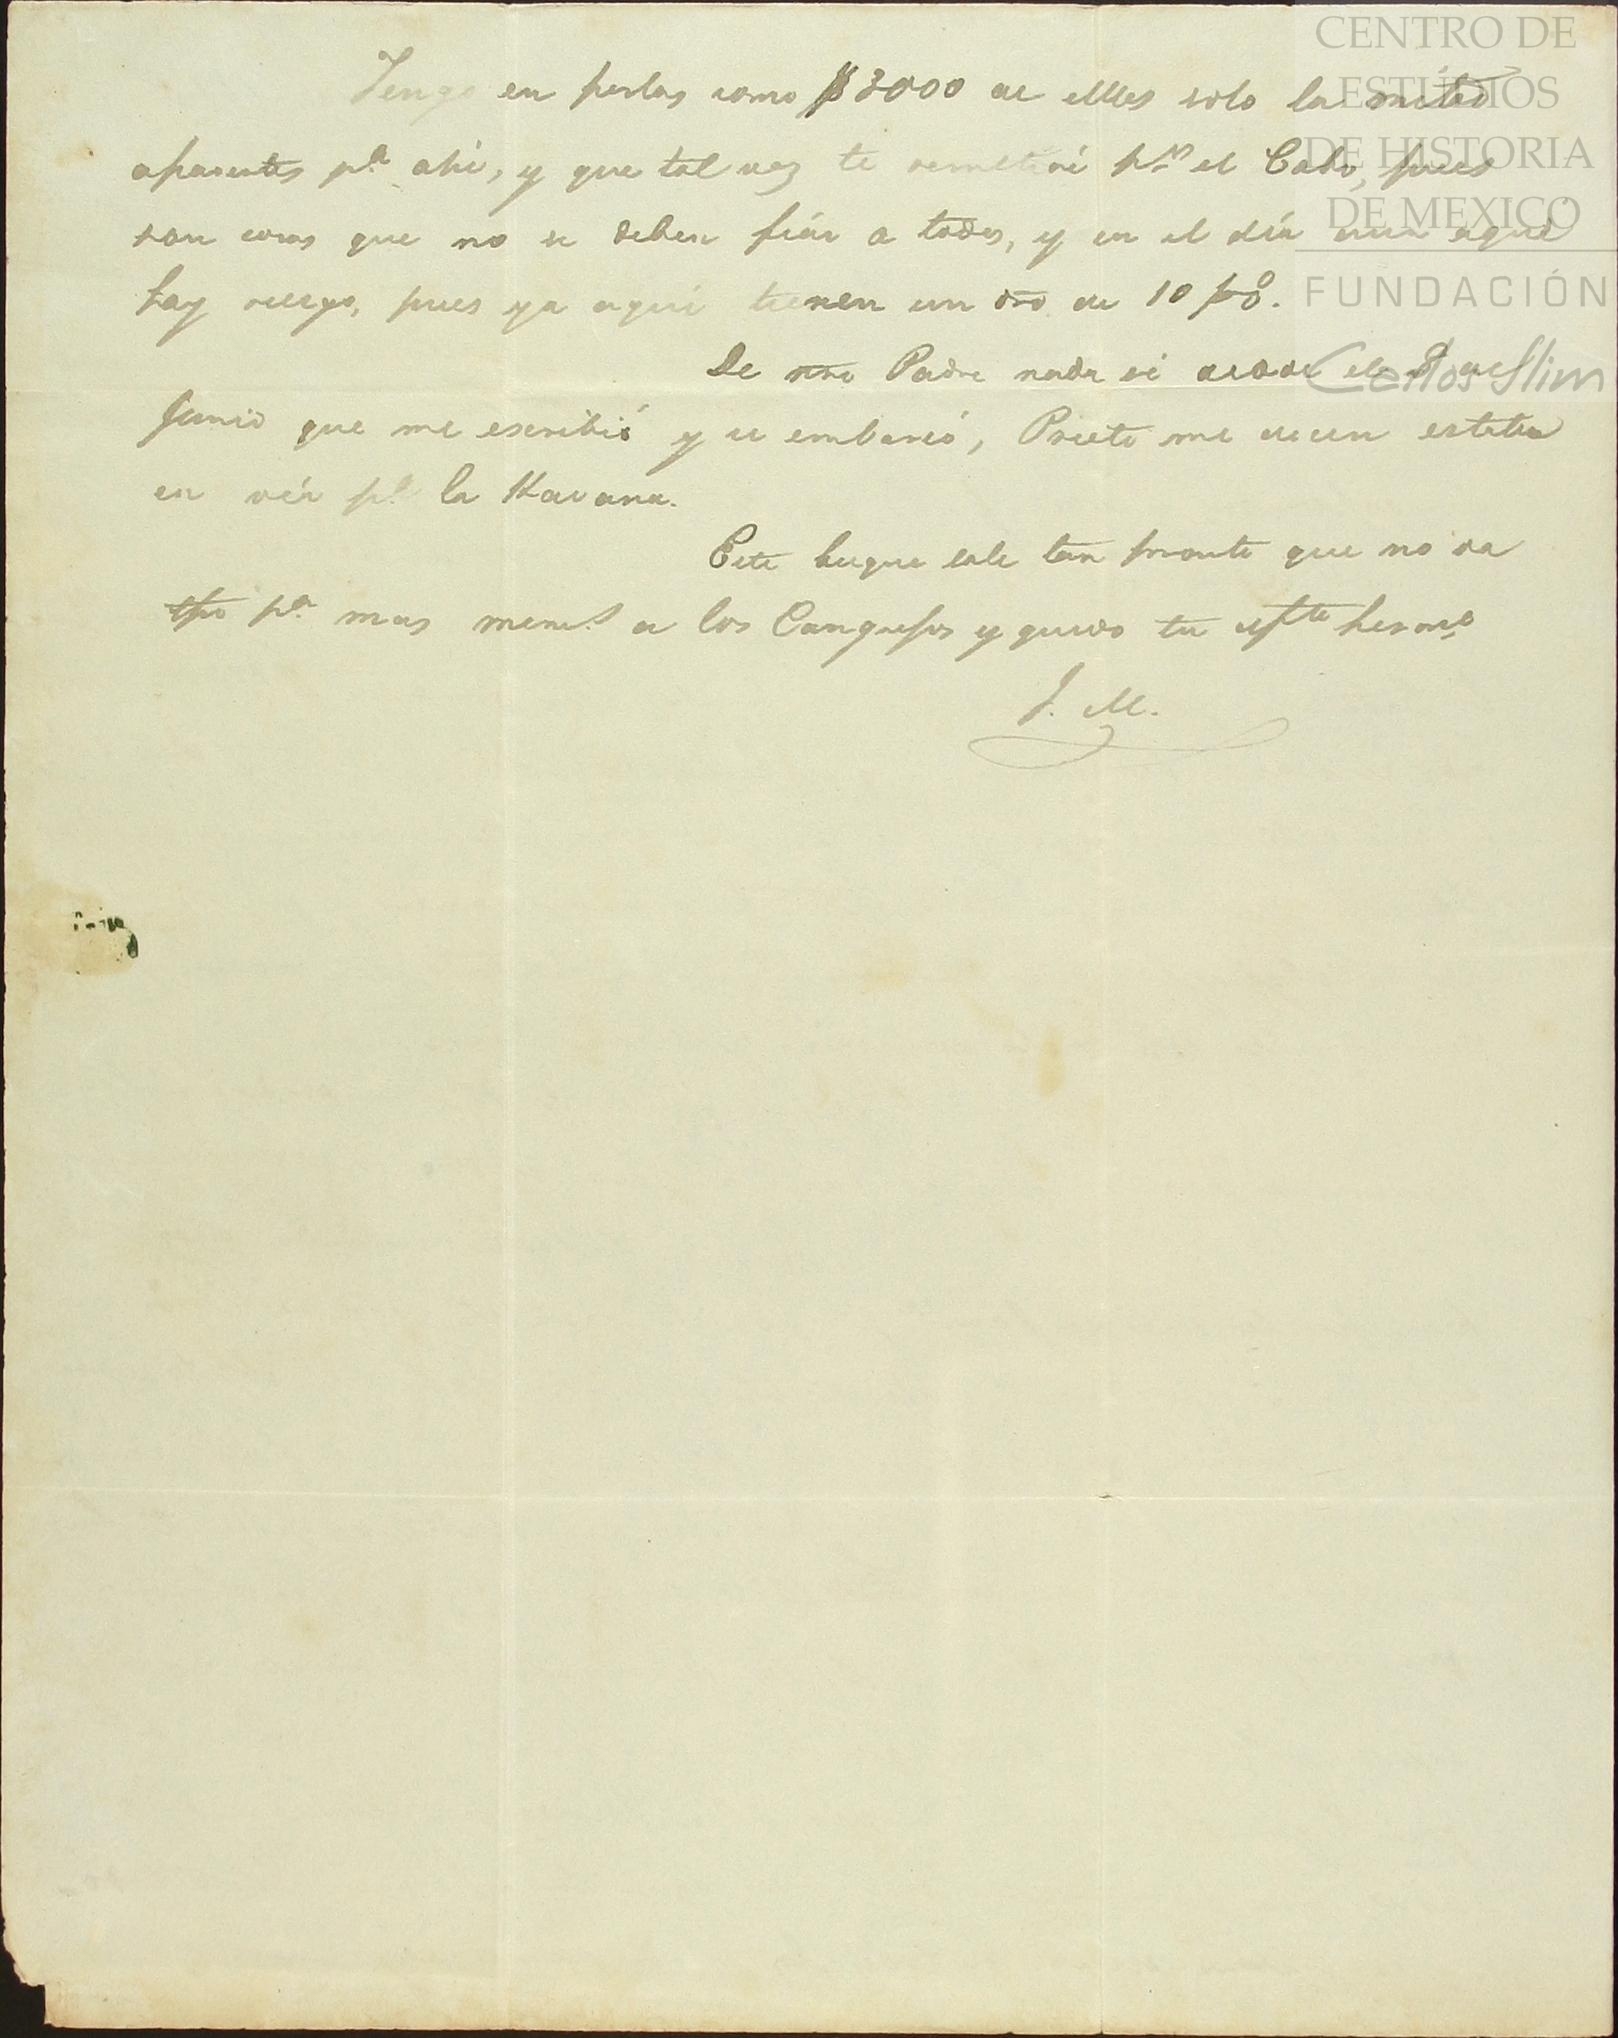 Tengo en perlas como $3000 de ellas solo la mitad
aparentes pª ahi, y que tal vez te remitiré pr el Cabo, pues
son cosas que no se deben fiár a todos, y en el día aun aqui
hay riesgo, pues ya aqui tienen un dro de 10 p%.
De nro Padre nada sé desde el 8 de
Junio que me escribió y se embarcó, Prieto me dicen estaba
en vía pª la Havana.
Este buque sale tan pronto que no da
tpo pª mas mems a los Cangrejos y quedo tu afto hermo
J. M.
CENTRO DE
ESTUDIOS
DE HISTORIA
DE MEXICO
FUNDACIÓN
Carlos Slim